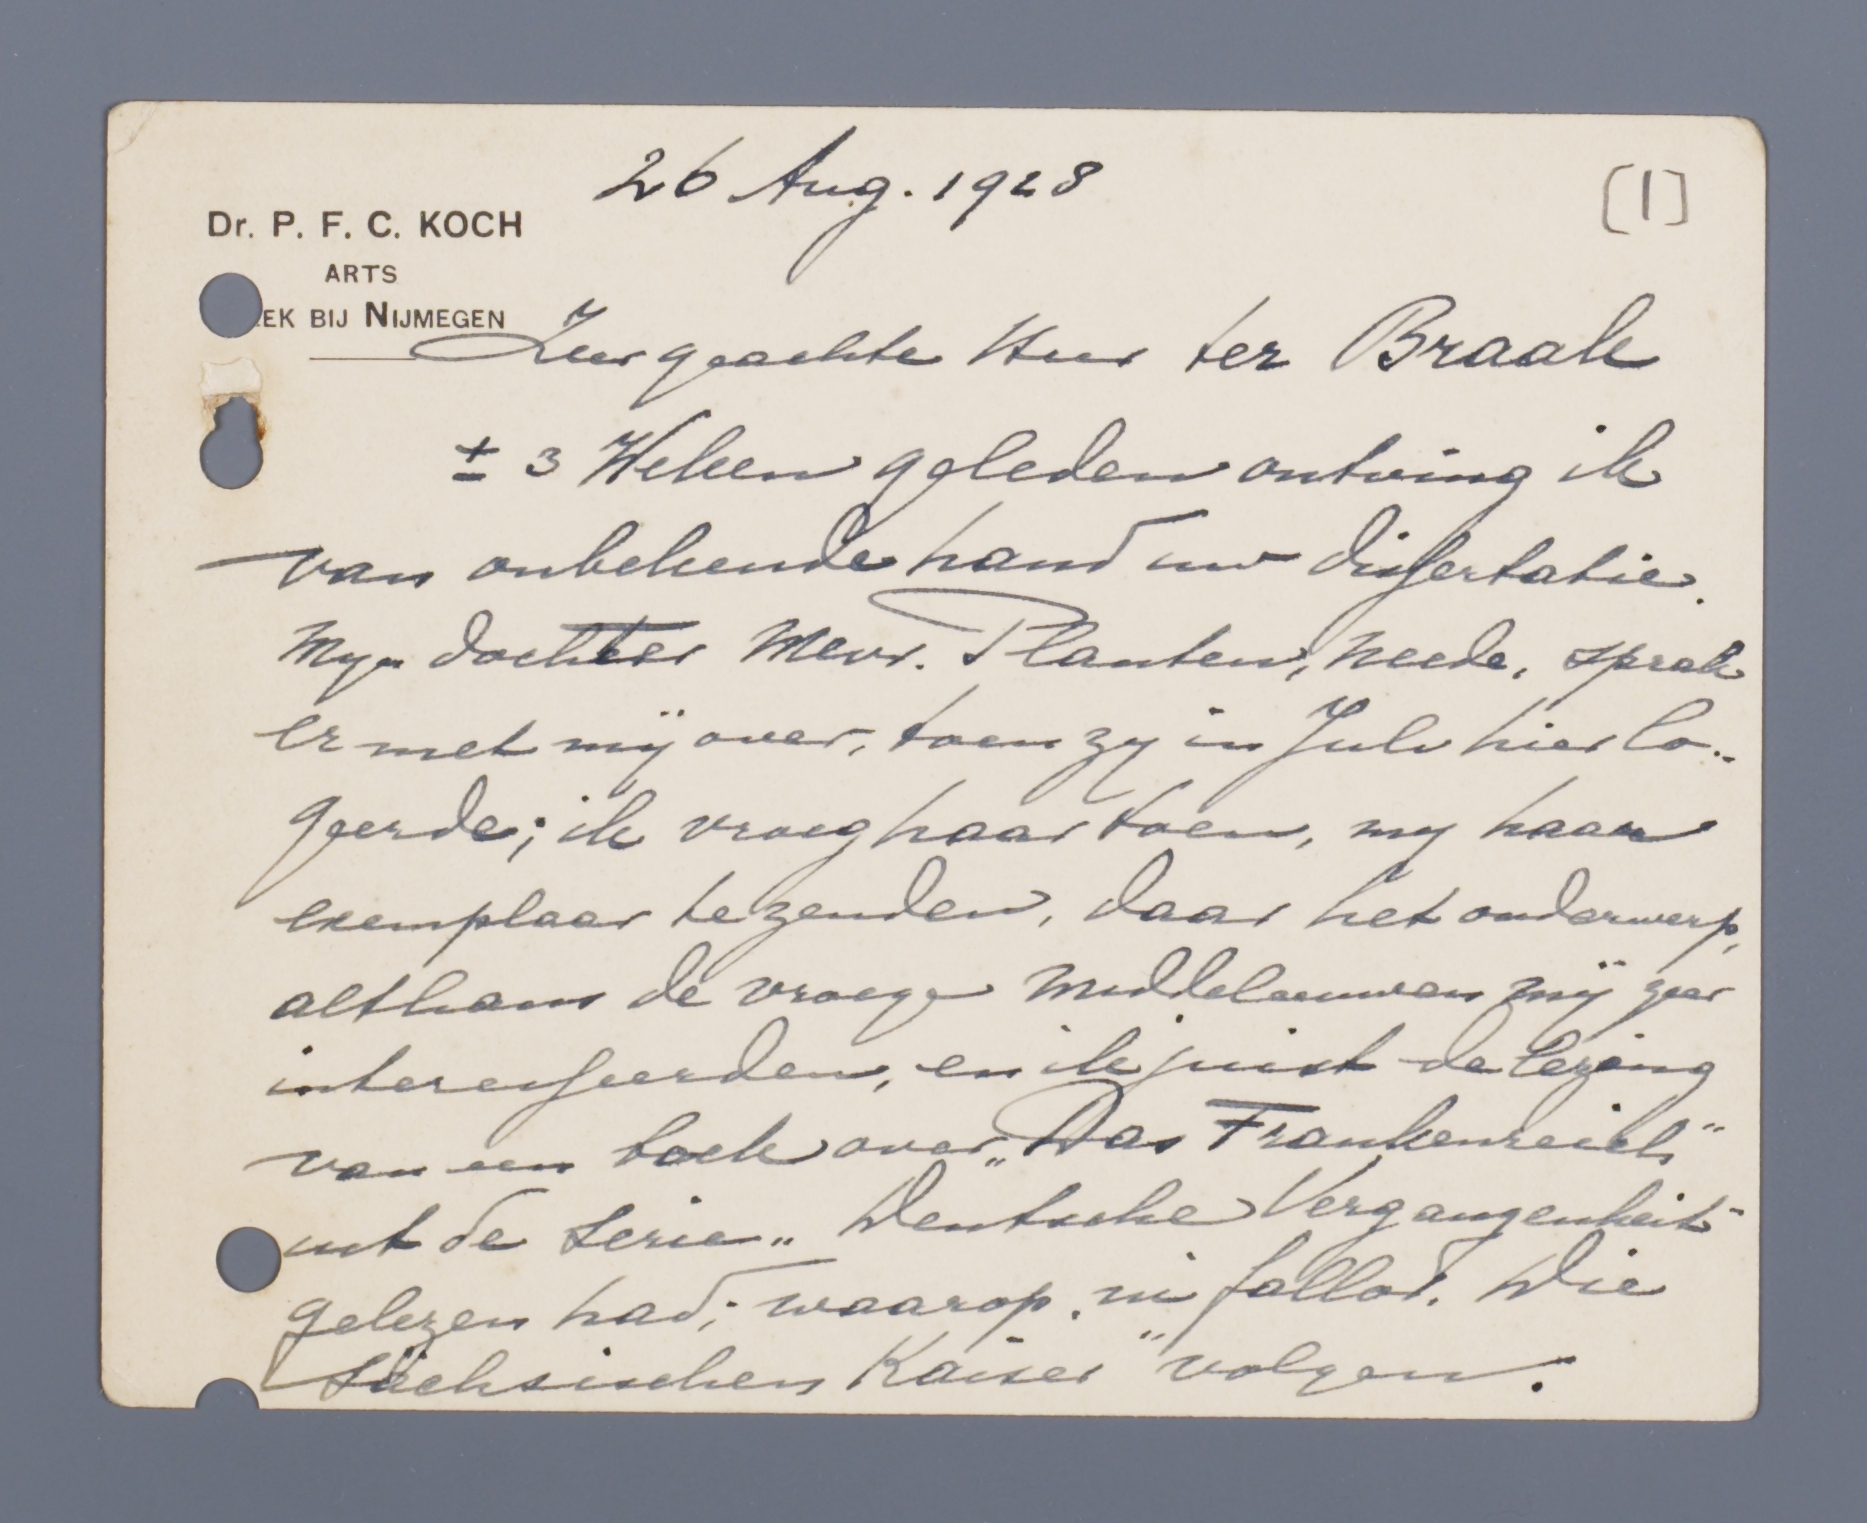 26 Aug. 1928
[1]
Dr. P. F. C. KOCH
ARTS
EK BIJ NIJMEGEN
Zeer geachte Heer ter Braak
± 3 Weken geleden ontving ik
van onbekende hand uw dissertatie.
Mijn dochter Mevr. Planten, Neede, sprak
er met mij over, toen zij in Juli hier lo-
geerde; ik vroeg haar toen, mij haar
exemplaar te zenden, daar het onderwerp,
althans de vroege Middeleeuwen mij zeer
interesseerden, en ik juist de lezing
van een boek over „Das Frankenreich"
uit de serie „Deutsche Vergangenheit"
gelezen had; waarop, ni fallor, Die
Sächsischen Kaiser" volgen.